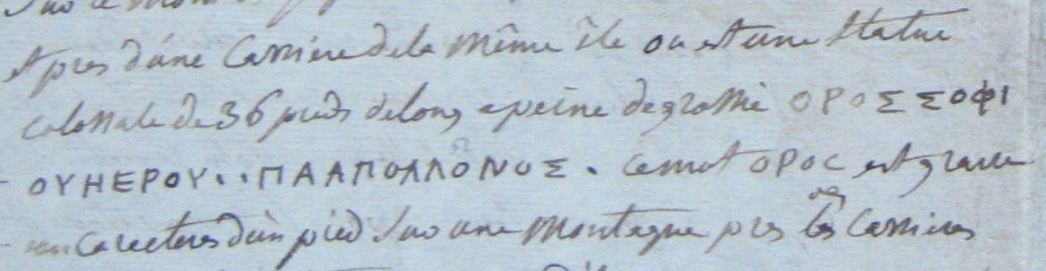 et pres d'une Carriere de la même île ou est une Statue
Colossale de 36 pieds de long a peine degrossie ΟΡΟΣ ΣΟΦΙ
ΟΥΗΕΡΟΥ··ΠΑΑΠΟΛΛΟΝΟΣ. Ce mot ΟΡΟC est gravé
en Caracteres d'un pied sur une Montagne pres des Carrieres